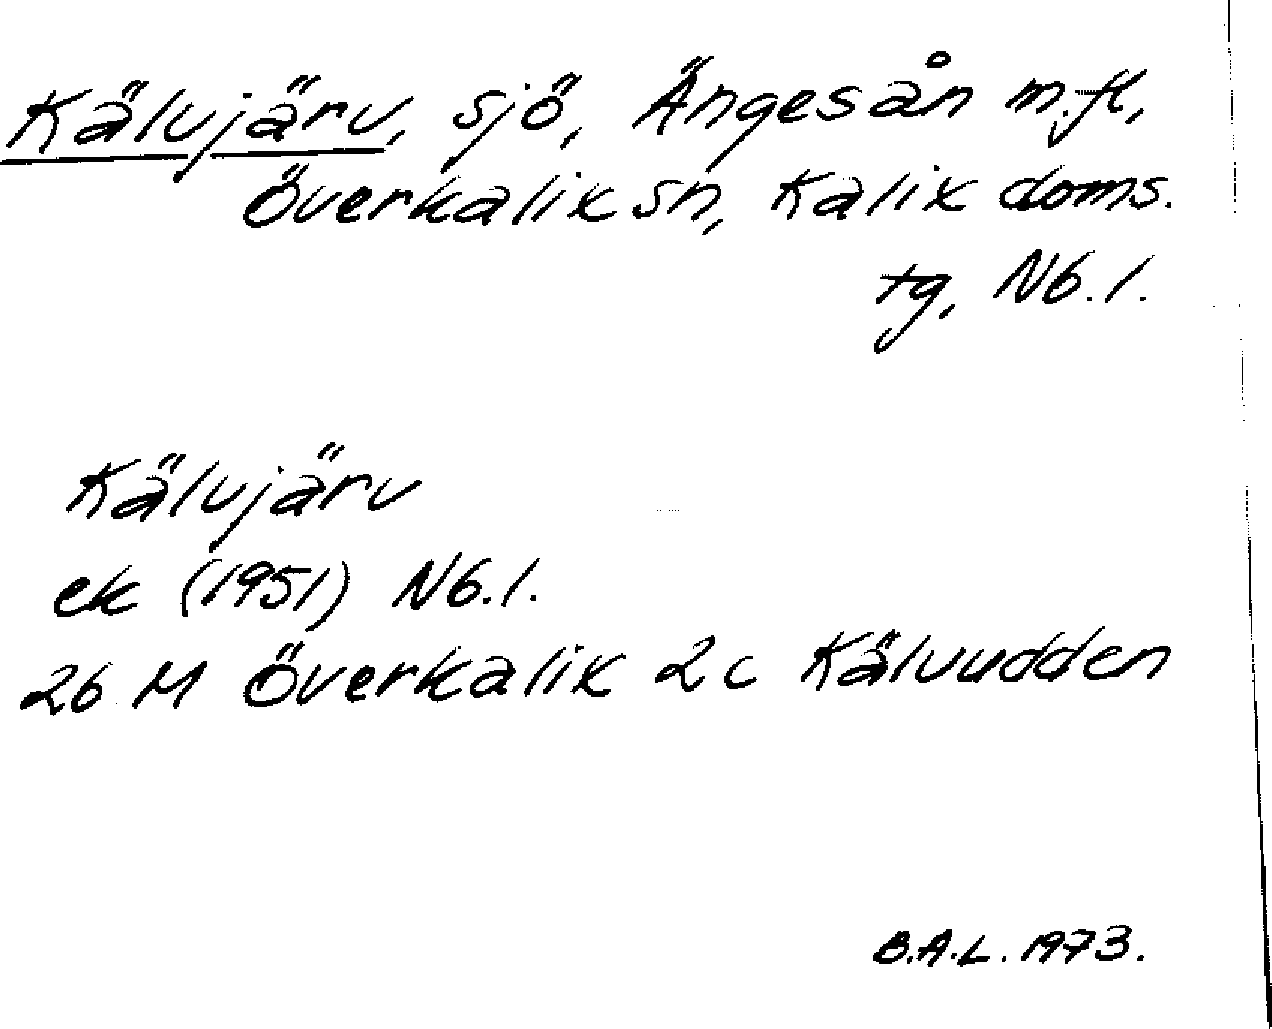 Kälvjärv, sjö, Ängesån m.fl.,
Överkalix sn, Kalix doms.
tg, Nb.l.
Kälvjärv
ek (1951) Nb.l.
26 M Överkalix 2c Kälvudden
B.A.L. 1973.